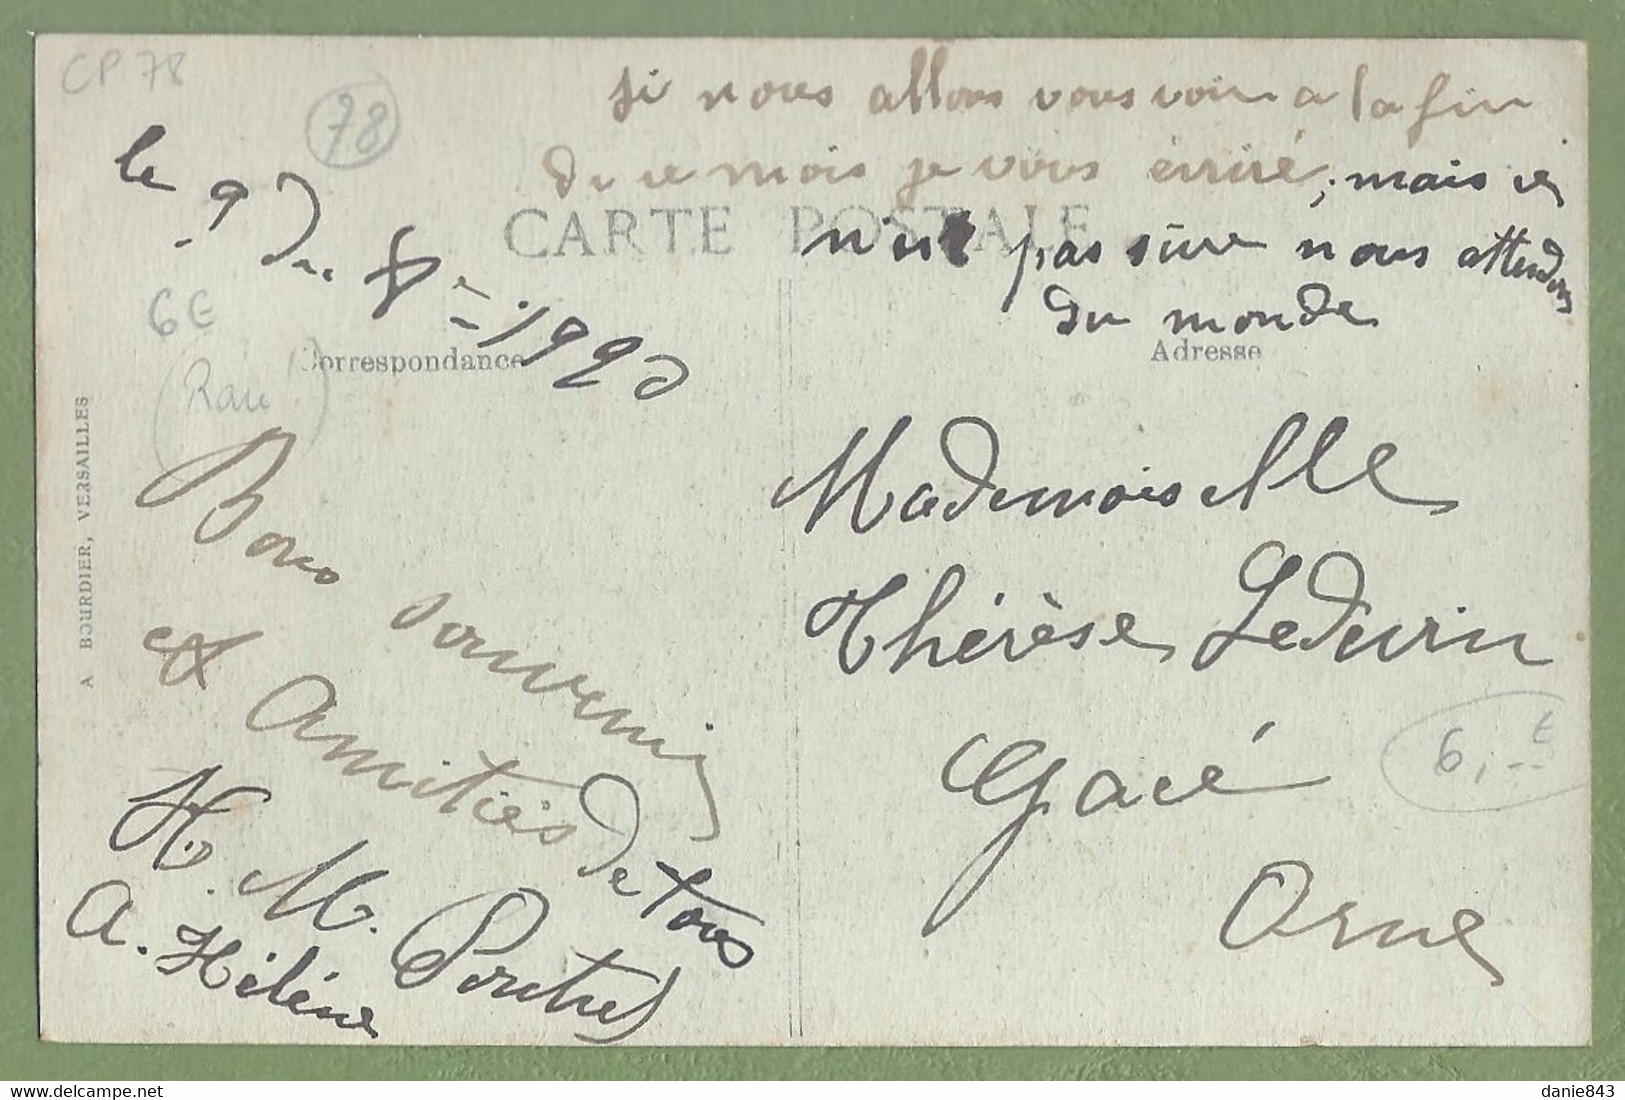 CP 78
78
si nous allons vous voir a la fin
du ce mois je vous érriré, mais ce
n'est pas sûre nous attendons
du monde
CARTE POSTALE
le 9 du 8= 1920
6€
(Rare)
Correspondance
Adresse
A BOURDIER, VERSAILLES
Bons souvenirs
et Amitiés de tous
H. M. Poutrel
A. Hélène
Mademoiselle
Thérèse Ledurin
Gacé
6,--€
Orne
delcampe.net
danie843